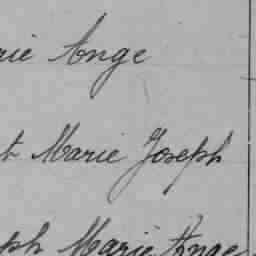 rie Ange
t Marie Joseph
ph Marie Ange